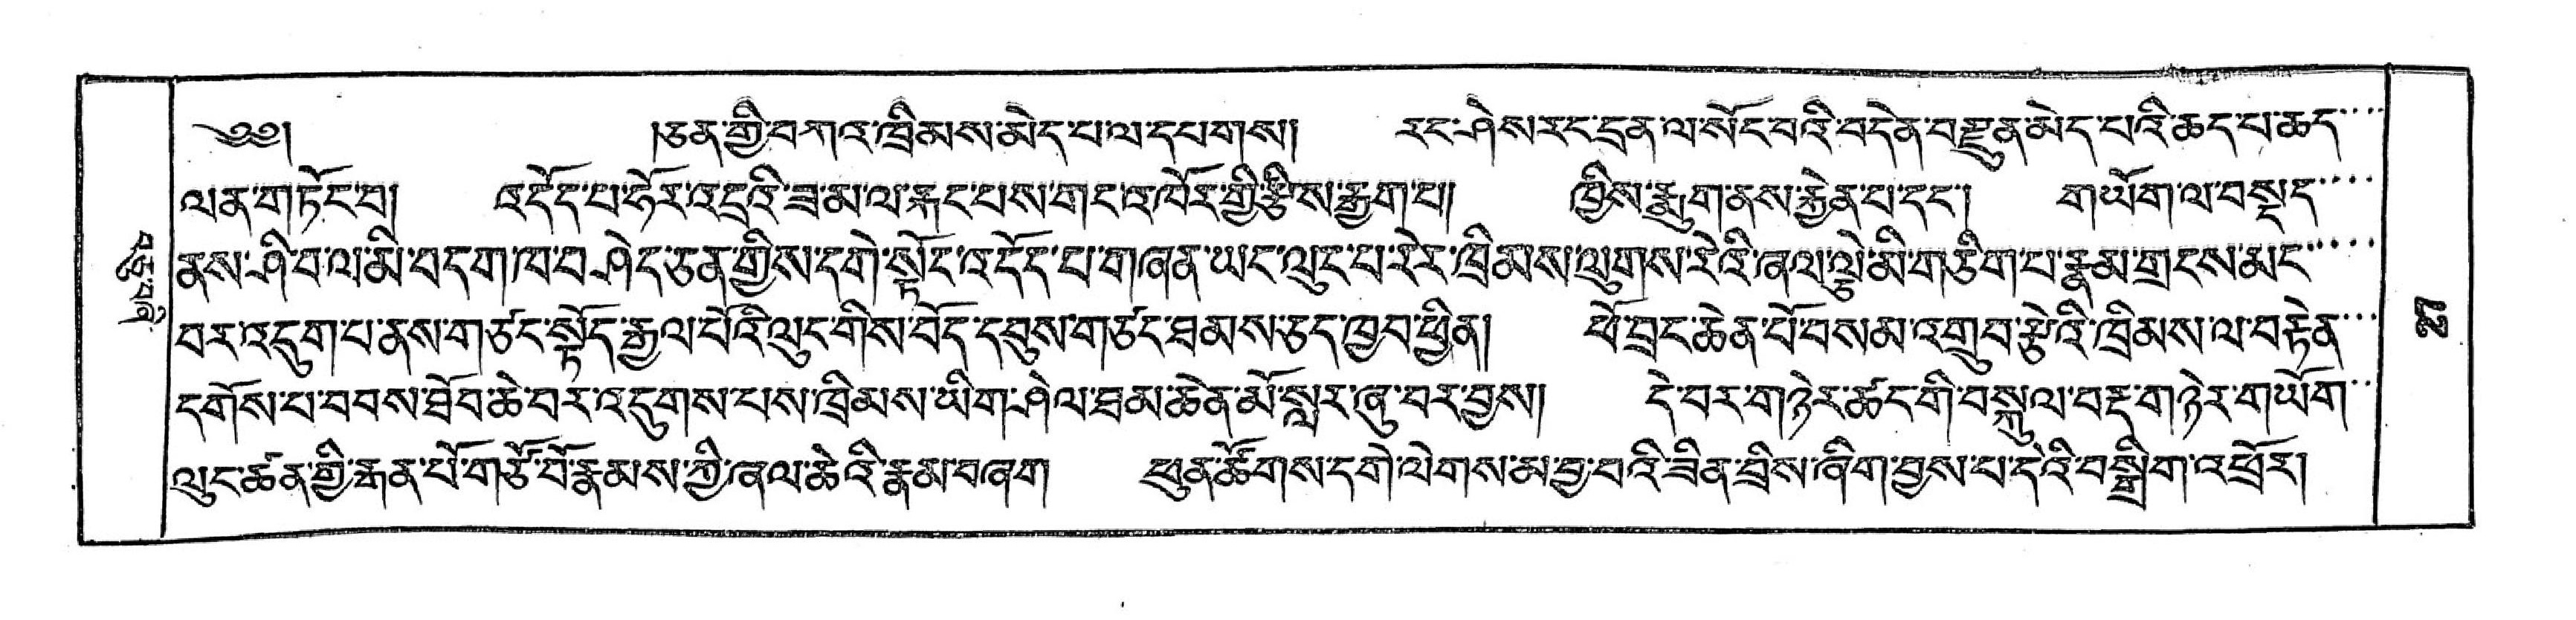 ༄༅། །ཅན་གྱི་བཀའ་ཁྲིམས་མེད་པ་ལ་དཔགས། རང་ཤེས་རང་དྲན་ལ་སོང་བའི་བདེན་བརྫུན་མེད་པའི་ཆད་པ་ཆད་
ལན་གཏོང་བ། འདོད་པ་ཧོར་འདྲའི་ཟམ་ལ་རྐང་པས་གང་འཁོར་གྱི་རྩིས་རྒྱག་པ། ཁྱིས་རྨུག་ནས་རྐྱེན་པ་དང་། གཡོག་ལ་བསྡད་
ནས་ཤི་བ་ལ་མི་བདག་ཁ་བ་ཤེད་ཅན་གྱིས་དགེ་སྟོང་འདོད་པ་གཞན་ཡང་ལུང་པ་རེར་ཁྲིམས་ལུགས་རེའི་ཞལ་ལྕེ་མི་གཅིག་པ་རྣམ་གྲངས་མང་
བར་འདུག་པ་ནས་གཙང་སྟོད་རྒྱལ་པོའི་ལུང་གིས་བོད་དབུས་གཙང་ཐམས་ཅད་ཁྱབ་ཕྱིན། ཕོ་བྲང་ཆེན་པོ་བསམ་འགྲུབ་རྩེའི་ཁྲིམས་ལ་བརྟེན་
དགོས་པ་བབས་ཐོབ་ཆེ་བར་འདུགས་པས་ཁྲིམས་ཡིག་ཤེལ་ཐམ་ཆེན་མོ་སླར་ཞུ་བར་བྱས། དེ་བར་གཉེར་ཚང་གི་བསྐུལ་བརྡ་གཉེར་གཡོག་
ལུང་ཚན་གྱི་རྒན་པོ་གཙོ་བོ་རྣམས་ཀྱི་ཞལ་ཆེའི་རྣམ་བཞག ཕུན་ཚོགས་དགེ་ལེགས་མ་བྱ་བའི་ཟིན་བྲིས་ཞིག་བྱས་པ་དེའི་བསྒྲིག་འཕྲོར།